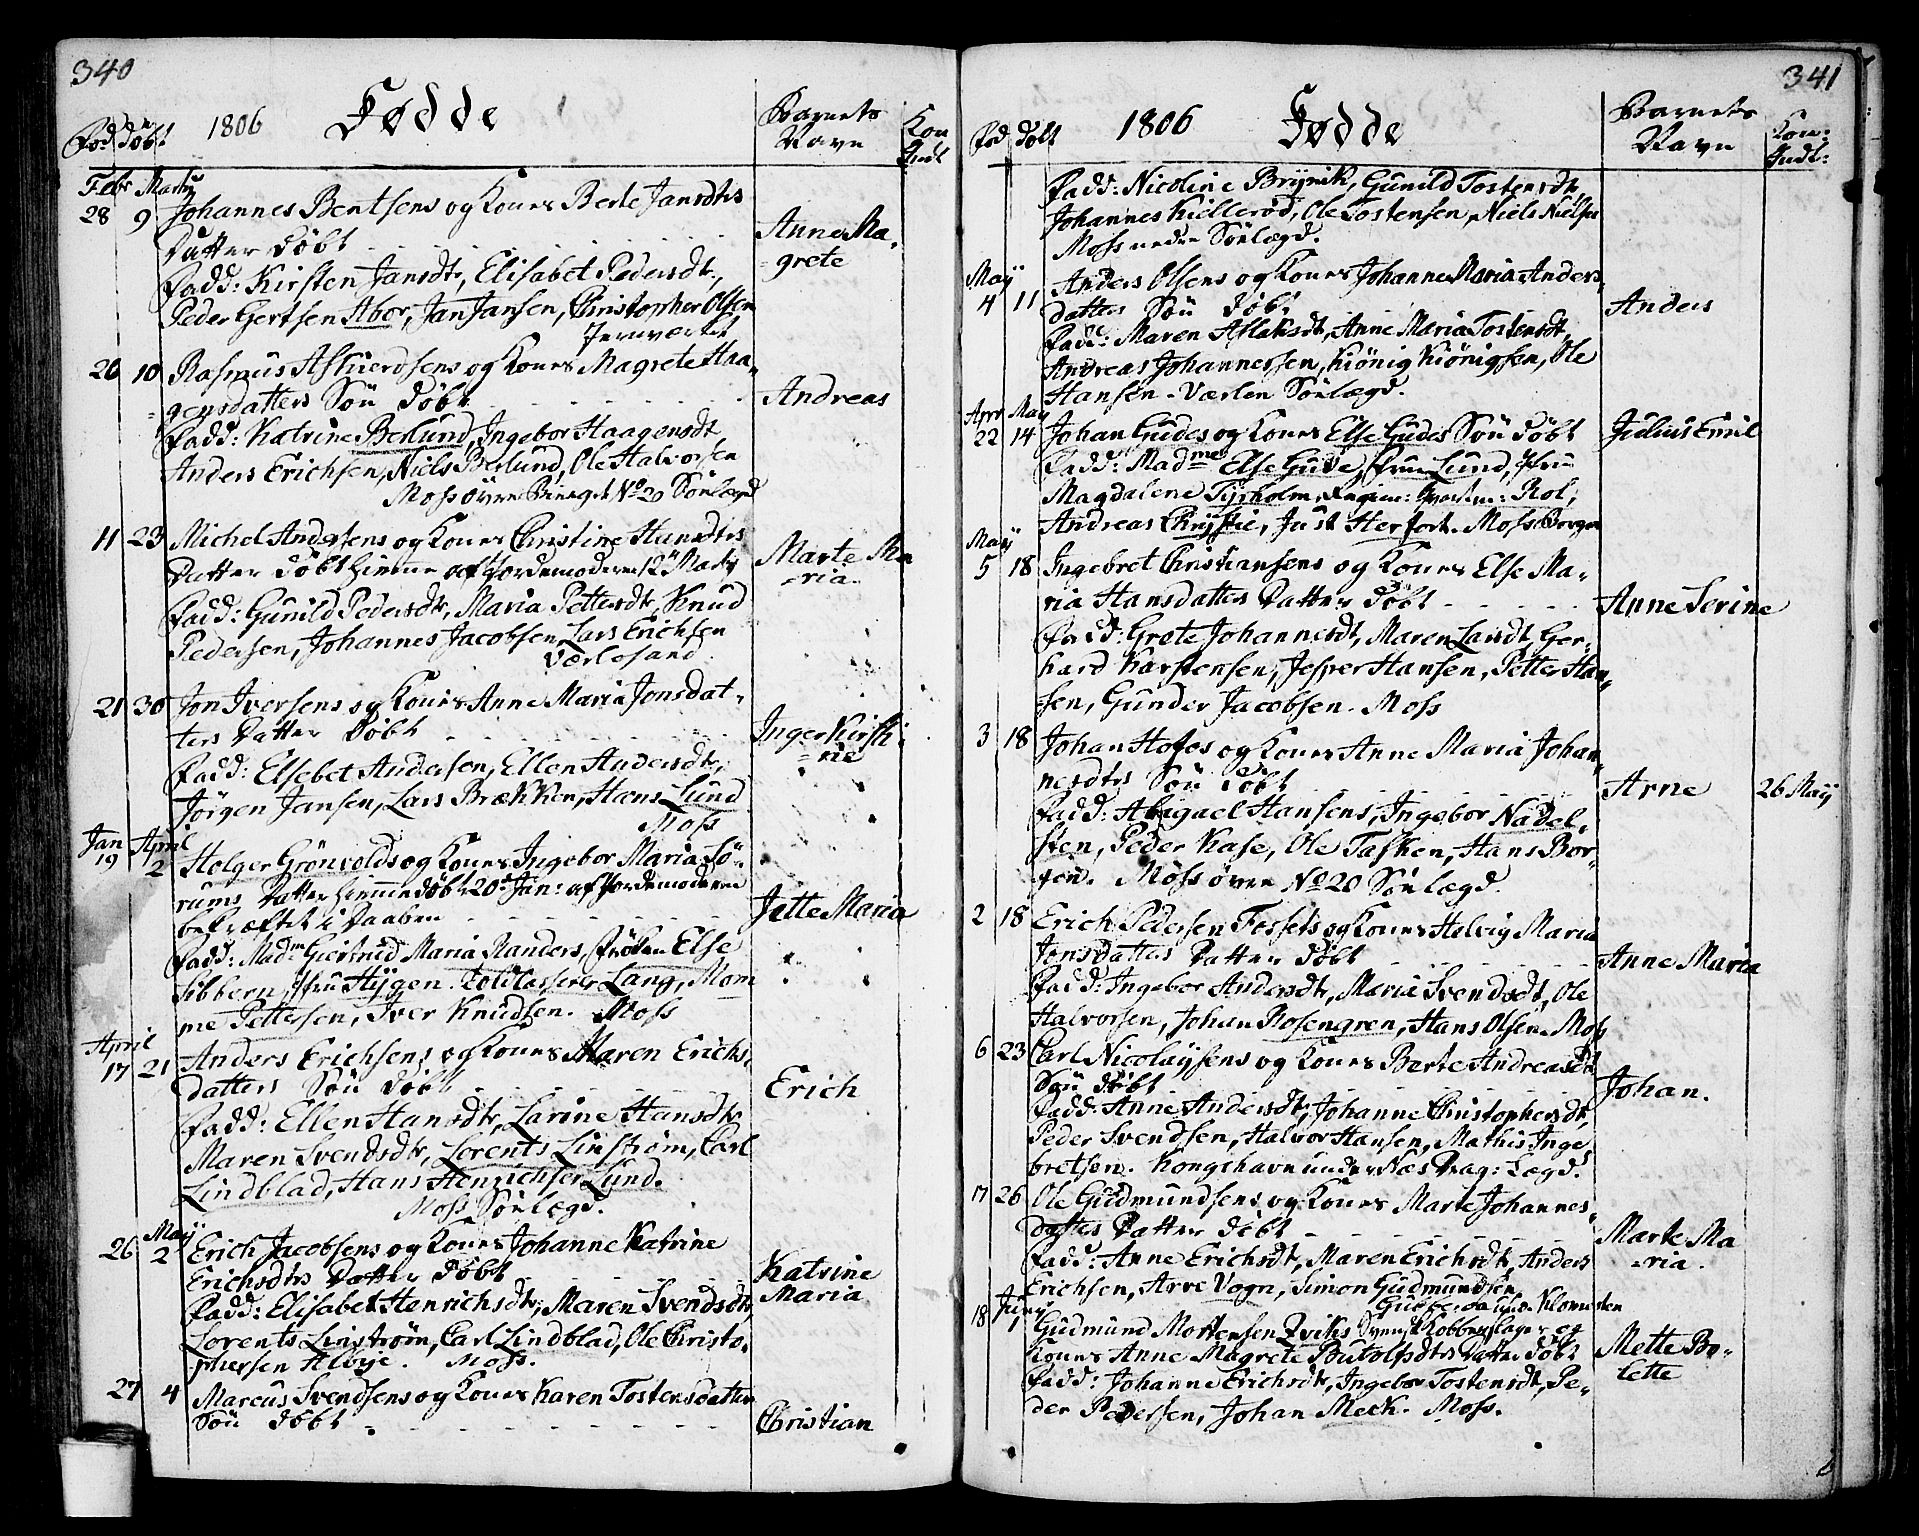 340
1806 Fødde
Barnets
Navn
Kon
Indt
Fød Døbt
Febr Martij
28 9 Johannes Bentsens og Kones Berte Jansdtrs
Datter Døbt
Anne Ma-
grete
Fadd: Kirsten Jansdtr, Elisabet Pedersdtr,
Peder Gertsen Abor, Jan Jansen, Christopher Olsen
Jernværket
20 10 Rasmus Afluerdsens og Kones Magrete Haa-
gensdatters Søn Døbt
Andreas
Fadd: Katrine Berlund, Ingebor Haagensdt,
Anders Erichsen, Niels Berlund, Ole Halvorsen
Moss øvre Bierget No 20 Sønlægd
11 23 Michel Andersens og Kones Christine Hansdtrs
Datter Døbt hiemme af Jordemoderen 12te Martij
Marte Ma
ria
Fadd: Gunild Pedersdtr, Maria Pettersdtr, Knud
Pedersen, Johannes Jacobsen, Lars Erichsen
Værlesand
21 30 Jon Iversens og Kones Anne Maria Jonsdat-
ters Datter Døbt
Inger Kirsti-
ne
Fadd: Elsebet Andersen, Ellen Andersdtr,
Jørgen Jansen, Lars Brækken, Hans Lund
Moss
Jan April
19 2 Holger Grönvolds og Kones Ingebor Maria Sö-
rums Datter hiemmedøbt 20de Jan: af Jordemoderen
bekræftet i Daaben
Jette Maria
Fadd: Madm Giertrud Maria Randers, Frøken Else
Sibbern, Fru Hÿgen, Toldkasserer Lang, Mom
me Pettersen, Iver Knudsen. Moss
April
17 21 Anders Erichsens og Kones Maren Erichs-
datters Søn Døbt
Erich
Fadd: Ellen Hansdtr, Larine Hansdtr
Maren Svendsdtr, Lorents Linström, Carl
Lindblad, Hans Henrichsen Lund.
Moss Sønlægd.
Maÿ
26 2 Erich Jacobsens og Kones Johanne Katrine
Erichsdtrs Datter Døbt
Katrine
Maria
Fadd: Elisabet Henrichsdtr, Maren Svendsdtr,
Lorents Linström, Carl Lindblad, Ole Christo-
phersen Helvje. Moss.
27 4 Marcus Svendsens og Kones Karen Tostensdatter
Søn Døbt
Christian
341
1806 Fødde
Barnets
Navn
Kon:
Indt:
Fød Døbt
Fadd: Nicoline Brÿnik, Gunild Tostensdtr,
Johannes Kiellerød, Ole Tostensen, Niels Nielsen
Moss nedre Sønlægd.
Maÿ
4 11 Anders Olsens og Kones Johanne Maria Anders-
datters Søn Døbt
Anders
Fadd: Maren Aslaksdt, Anne Maria Tostensdt,
Andreas Johannessen, Kiönig Kiönigsen, Ole
Hansen. Værlen Sønlægd.
Apr Maÿ
22 14 Johan Gudes og Kones Else Gudes Søn Døbt
Julius Emil
Fadd: Madme Else Gude, Frue Lund, Jfru
Magdalene Tÿrholm, Regim: Qvartm: Rol,
Andreas Chrÿstie, Just Herfort. Moss Borger
Maÿ
5 18 Ingebret Christiansens og Kones Else Ma-
ria Hansdatters Datter Døbt
Anne Serine
Fadd: Grete Johannesdt, Maren Larsdt, Ger-
hard Karstensen, Jesper Hansen, Petter Han-
sen, Gunder Jacobsen. Moss
3 18 Johan Hofos og Kones Anne Maria Johan-
nesdtrs Søn Døbt
Arne
26 Maÿ
Fadd: Abiguel Hansens, Ingebor Nadel-
sten, Peder Kase, Ole Tasken, Hans Bor-
gen. Moss øvre No 20 Sønlægd.
2 18 Erich Pedersen Fossets og Kones Helvig Maria
Jonsdatters Datter Døbt
Anne Maria
Fadd: Ingebor Andersdtr, Maria Svendsdt, Ole
Halvorsen, Johan Rosengren, Hans Olsen. Moss
6 23 Carl Nicolaÿsens og Kones Berte Andreasdt
Søn Døbt
Johan.
Fadd: Anne Andersdtr, Johanne Christophersdtr,
Peder Svendsen, Halvor Hansen, Mathis Inge
bretsen. Kongshavn under Næs Drag: Lægd.
17 26 Ole Gudmundsens og Kones Marte Johannes-
datters Datter Døbt
Marte Ma
ria.
Fadd: Anne Erichsdt, Maren Erichsdt, Anders
Erichsen, Arve Vogn, Simon Gudmundsen
Junÿ
18 1 Gudmund Mortensen Qviks Svensk Kobberslager og
Kones Anne Magrete Butolfsdtrs Datter Døbt
Mette Bo-
lette
Fadd: Johanne Erichsdt, Ingebor Tostensdt, Pe-
der Pedersen, Johan Meck. Moss.